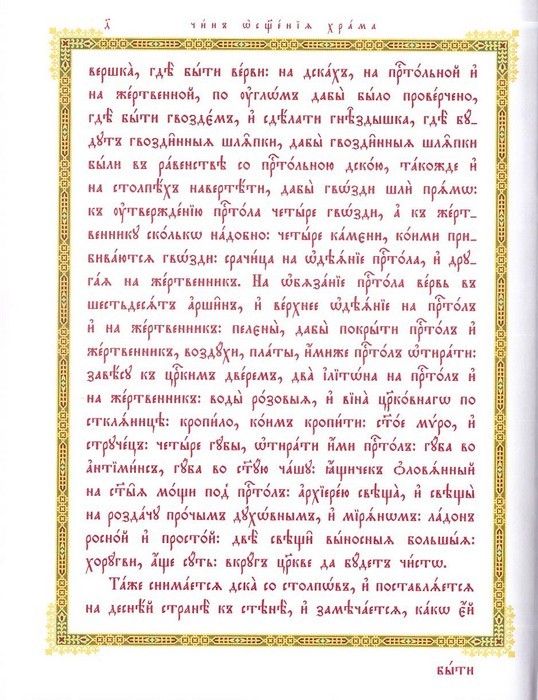 х҃ чи́нъ ѡ҆сщ҃е́нїѧ хра́ма
вершка̀, гдѣ̀ бы́ти ве́рви: на дска́хъ, на прⷭ҇то́льной и҆
на же́ртвенной, по ѹ҆глѡ́мъ дабы̀ бы́ло прове́рчено,
гдѣ̀ бы́ти гвозде́мъ, и҆ сдѣ́лати гнѣ́здышка, гдѣ̀ бѹ́-
дѹтъ гвозди̑нныѧ шлѧ̑пки, дабы̀ гвозди̑нныѧ шлѧ̑пки
бы́ли въ ра́венствѣ со прⷭ҇то́льною дско́ю, та́кожде и҆
на столпѣ́хъ наверте́ти, дабы̀ гвѡ́зди шлѝ прѧ́мѡ:
къ ѹ҆твержде́нїю прⷭ҇то́ла четы́ре гвѡ́зди, а҆ къ же́рт-
венникѹ ско́лькѡ на́добно: четы́ре ка́мени, ко́ими при-
бива́ютсѧ гвѡ́зди: срачи́ца на ѡ҆дѣѧ́нїе прⷭ҇то́ла, и҆ дрѹ-
га́ѧ на же́ртвенник. На ѡ҆бѧза́нїе прⷭ҇то́ла ве́рвь въ
шестьдесѧ́тъ а҆рши́нъ, и҆ ве́рхнее ѡ҆дѣѧ́нїе на прⷭ҇то́лъ
и҆ на же́ртвенникъ: пелены̀, дабы̀ покры́ти прⷭ҇то́лъ и҆
же́ртвенникъ, воздѹ́хи, пла́ты, и҆́миже прⷭ҇то́лъ ѡ҆тира́ти:
завѣ́сѹ къ цр҃кимъ две́ремъ, два̀ і҆лїто́на на прⷭ҇то́лъ и҆
на же́ртвенникъ: воды̀ ро́зовыѧ, и҆ вїна̀ цр҃ко́внагѡ по
стклѧ́ницѣ: кропи́ло, ко́имъ кропи́ти: ст҃о́е мѵ́ро, и҆
стрѹче́цъ: четы́ре гѹбы̀, ѡ҆тира́ти и҆́ми прⷭ҇то́лъ: гѹ́ба во
а҆нтїми́нсъ, гѹ́ба во ст҃ѹ́ю ча́шѹ: ꙗ҆́щичекъ ѻ҆ловѧ́нный
на ст҃ы̑ѧ мо́щи под прⷭ҇то́лъ: а҆рхїере́ю свѣща̀, и҆ свѣщы̀
на розда́чѹ про́чымъ дѹхѡ́внымъ, и҆ мїрѧ́нѡмъ: ла́донъ
росно́й и҆ просто́й: двѣ̀ свѣщѝ выносны́ѧ больши́ѧ:
хорѹ́гви, а҆́ще сѹ́ть: вкрѹ́гъ цр҃кве да бѹ́детъ чи́стѡ.
Та́же снима́етсѧ дска̀ со столпѡ́въ, и҆ поставлѧ́етсѧ
на десне́й странѣ̀ къ стѣнѣ̀, и҆ замѣча́етсѧ, ка́кѡ є҆́й
бы́ти